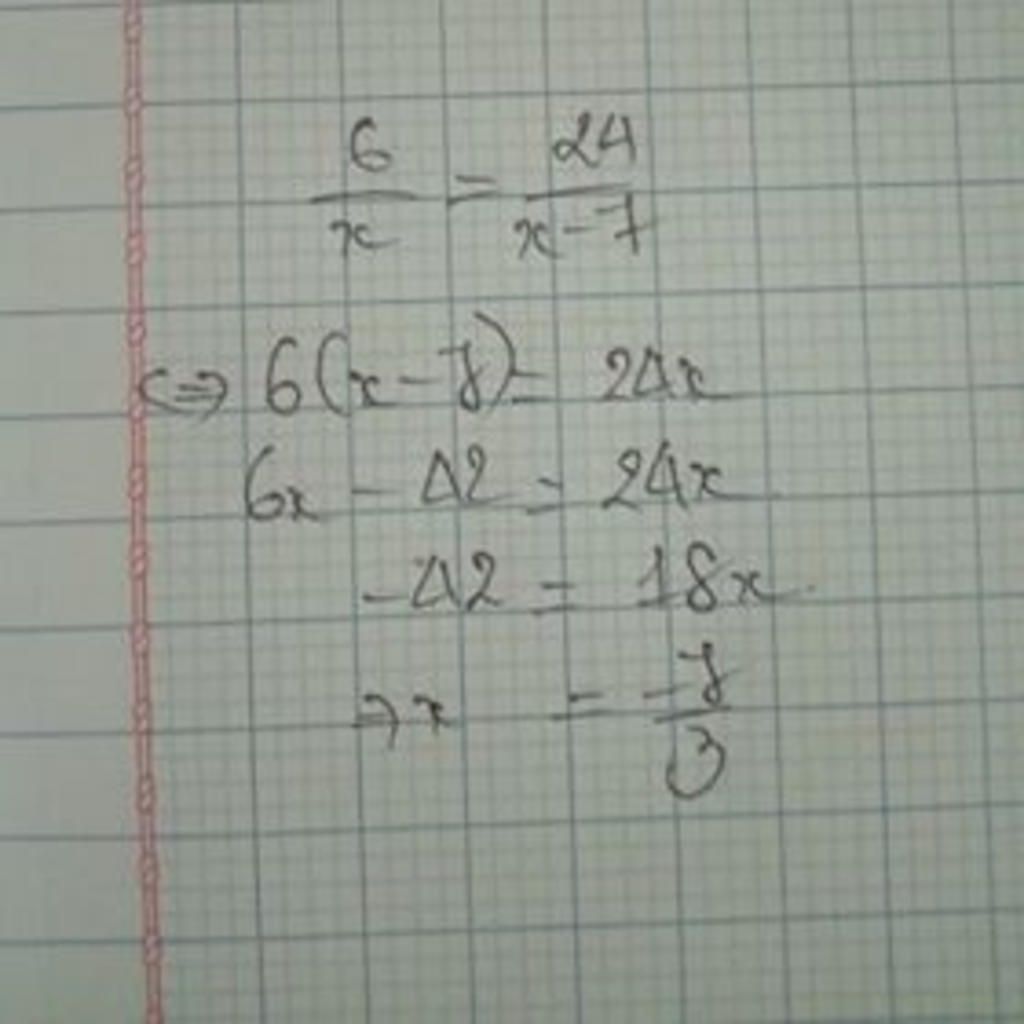 6/x = 24/x-7
<=> 6(x-7) = 24x
6x - 42 = 24x
-42 = 18x
=> x = -7/3